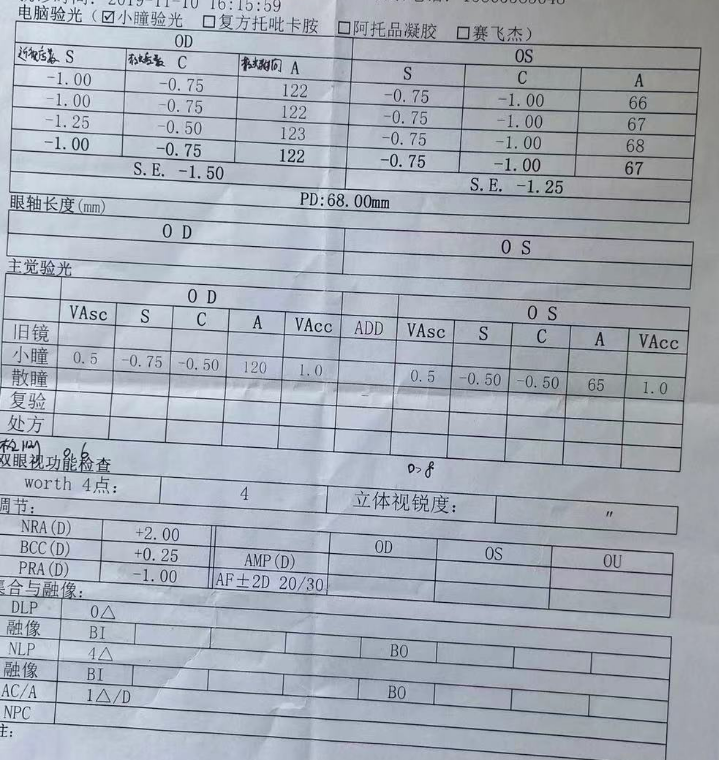 时间: 2019-11-10 16:15:59
电脑验光 (☑小瞳验光 ☐复方托吡卡胺 ☐阿托品凝胶 ☐赛飞杰)
OD OS
S C A S C A
-1.00 -0.75 122 -0.75 -1.00 66
-1.00 -0.75 122 -0.75 -1.00 67
-1.25 -0.50 123 -0.75 -1.00 68
-1.00 -0.75 122 -0.75 -1.00 67
S.E. -1.50 S.E. -1.25
眼轴长度(mm) PD:68.00mm
OD OS
主觉验光
OD OS
VAsc S C A VAcc ADD VAsc S C A VAcc
旧镜
小瞳 0.5 -0.75 -0.50 120 1.0 0.5 -0.50 -0.50 65 1.0
散瞳
复验
处方
0.6 0.8
双眼视功能检查
worth 4点: 4 立体视锐度: "
调节:
NRA(D) +2.00 OD OS OU
BCC(D) +0.25 AMP(D)
PRA(D) -1.00 AF±2D 20/30
集合与融像:
DLP 0△
融像 BI BO
NLP 4△
融像 BI BO
AC/A 1△/D
NPC
注: